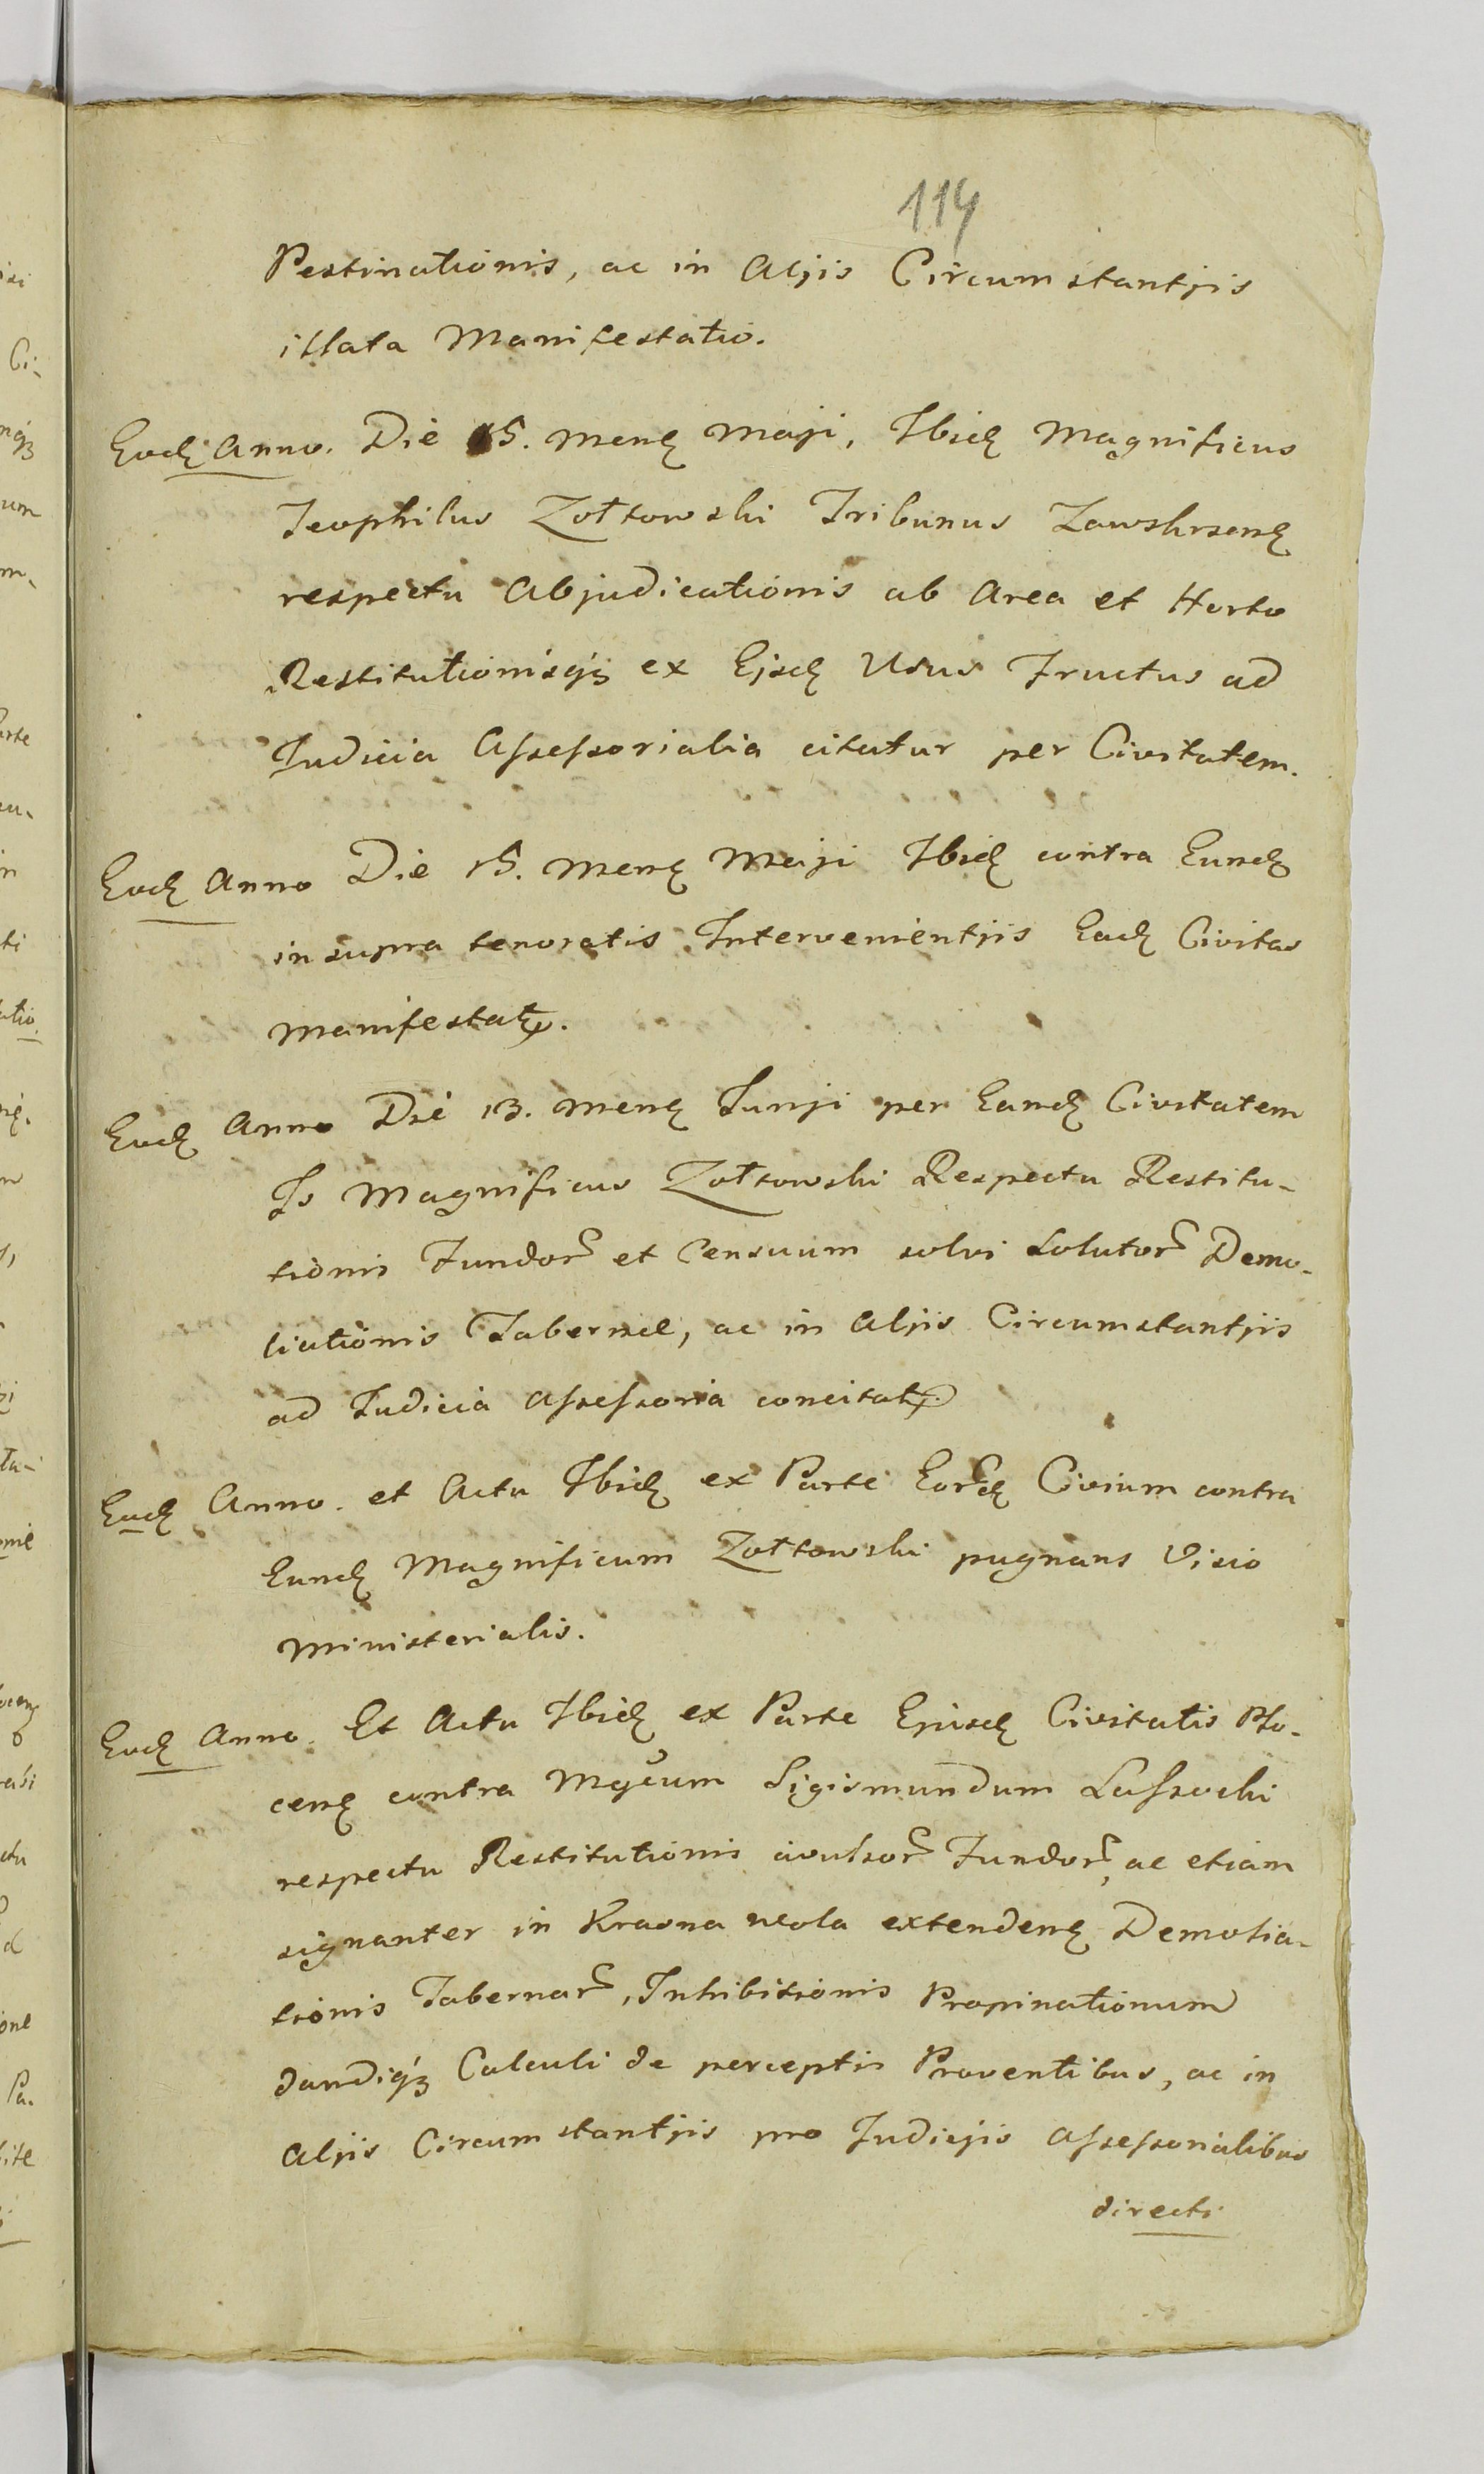 114
Pestinationis, ac in Alijs Circumstantijs
illata Manifestatio.
Eodę Anno. Die 15. Menę Maji, Ibidę Magnificus
Teophilus Zołtowski Tribunus Zawskrzenę
respectu Abjudicationis ab Area et Horto
Restitutionisqȝ ex Ejsdę Usus Fructus ad
Judicia Assessorialia citatur per Civitatem.
Eodę Anno Die 15. Menę Maji Ibidę contra Eundę
in supra tenoratis Intervenientjis Eadę Civitas
manifestatr.
Eodę Anno Die 13. Menę Junji per Eandę Civitatem
Is Magnificus Zołtowski Respectu Restitu-
tionis Fundor et Censuum solvi solutor Demo-
liationis Tabernæ, ac in Alijs Circumstantjis
ad Judicia Assessoria concitatr.
Eodę Anno. et Actu Ibidę ex Parte Eordę Civium contra
Eundę Magnificum Zołtowski pugnans Visio
Ministerialis.
Eodę Anno. Et Actu Ibidę ex Parte Ejusdę Civitatis Plo-
cenę contra Mgcum Sigismundum Lassocki
respectu Restitutionis avulsor Fundor, ac etiam
signanter in Krasna wola extendenę Demolia-
tionis Tabernar, Inhibitionis Propinationum
dandiqȝ Calculi de perceptis Proventibus, ac in
Alijs Circumstantjis pro Judicijs Assessorialibus
directi